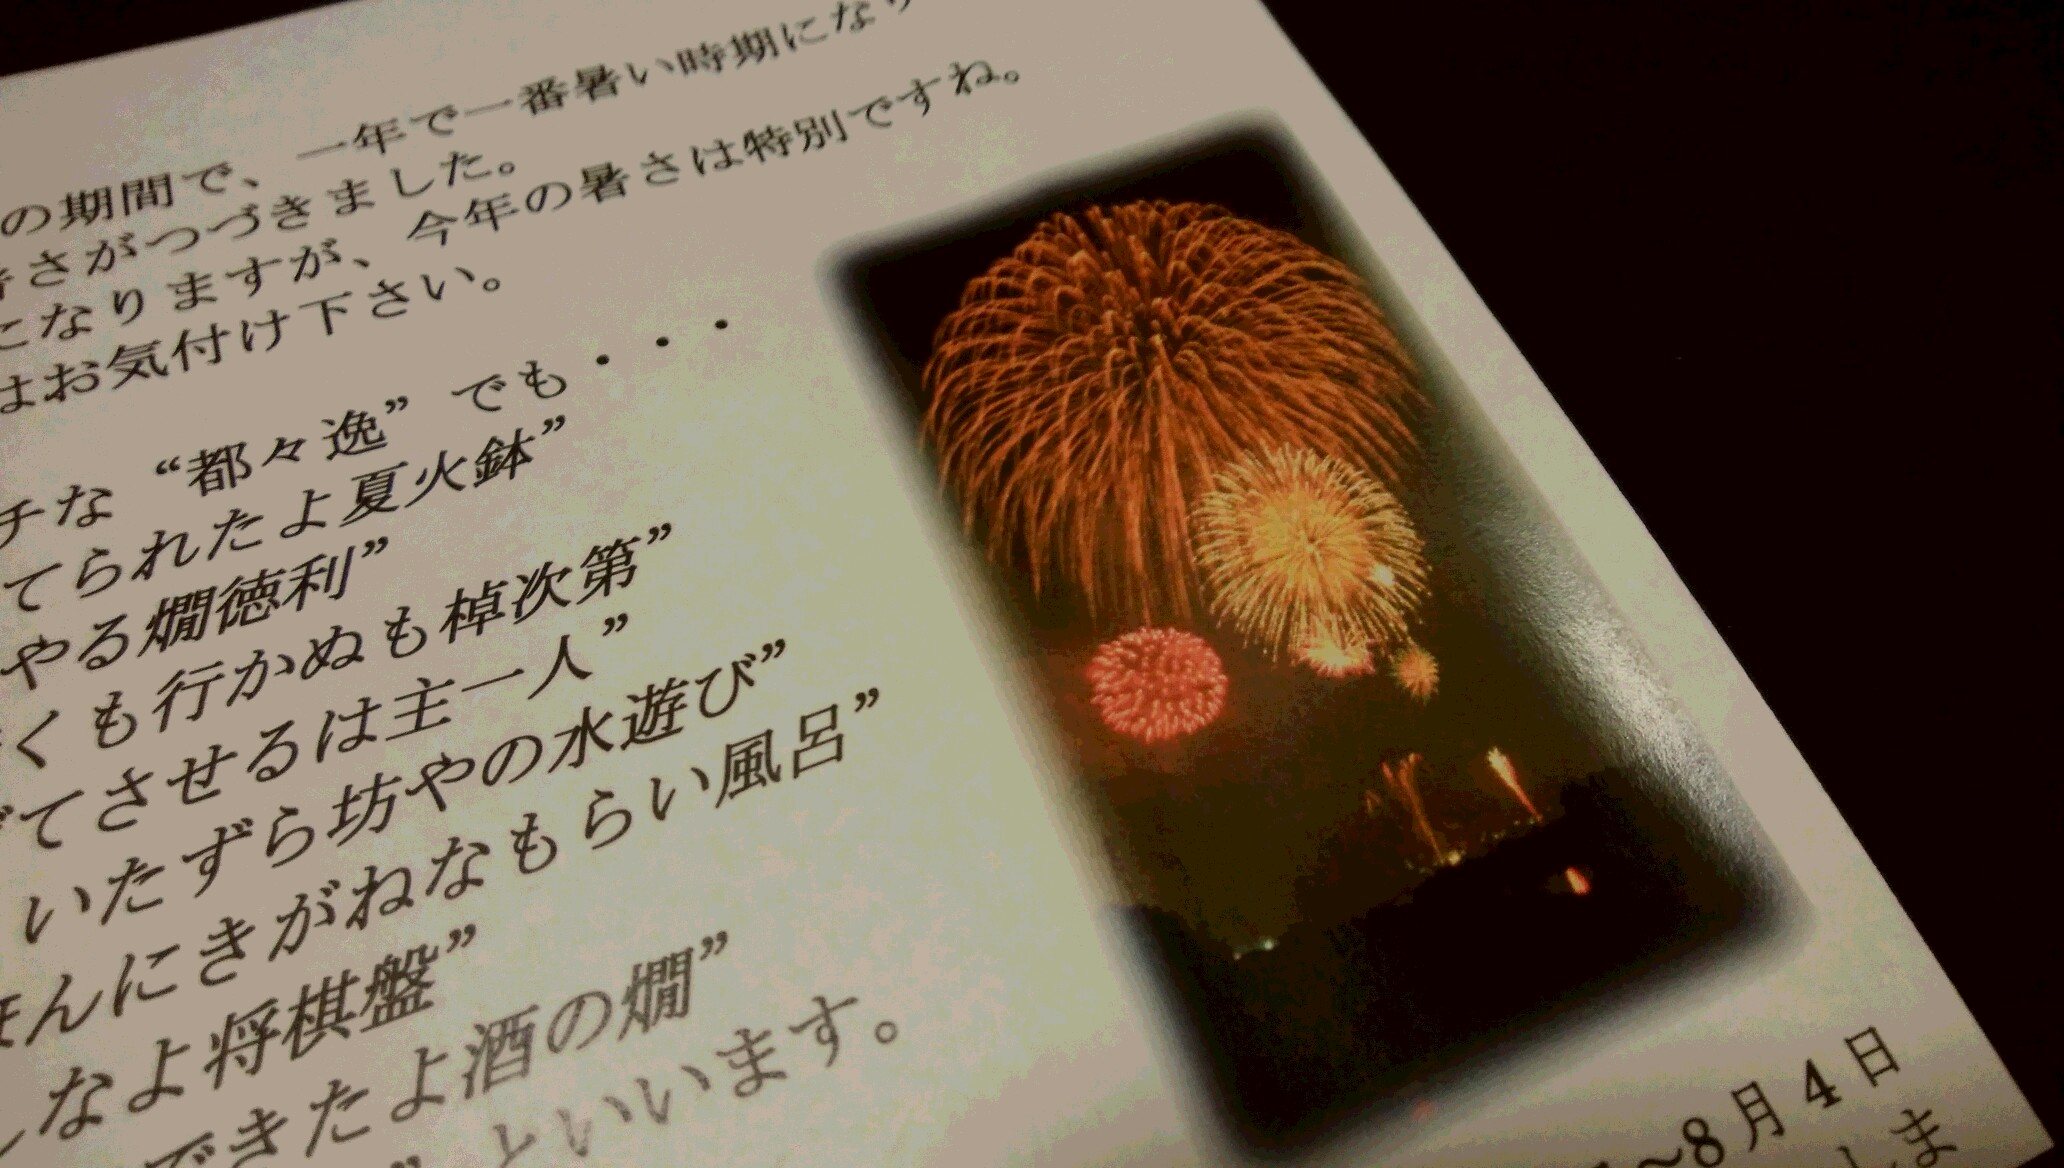 の期間で、一年で一番暑い時期になり
さがつづきました。
になりますが、今年の暑さは特別ですね。
はお気付け下さい。
チな “都々逸” でも・・・
てられたよ夏火鉢”
やる燗徳利”
くも行かぬも棹次第”
てさせるは主一人”
いたずら坊やの水遊び”
ほんにきがねなもらい風呂”
なよ将棋盤”
できたよ酒の燗”
” といいます。
～8月4日
しま